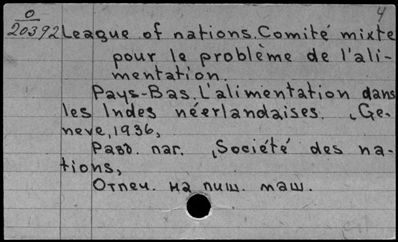 4
0
20392 League of nations. Comité mixte
pour le problème de l'ali-
mentation.
Pays-Bas. L'alimentation dans
les Indes néerlandaises. , Ge-
neve, 1936,
Разд. паг. , Société des na-
tions,
Отпеч. на пиш. маш.